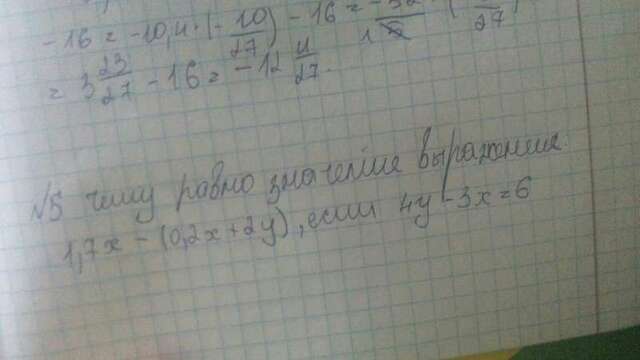 -16 = -10,4 · (-10/27) - 16 =
= 3 23/27 - 16 = -12 4/27
№5 чему равно значение выражения
1,7x - (0,2x + 2y), если 4y - 3x = 6